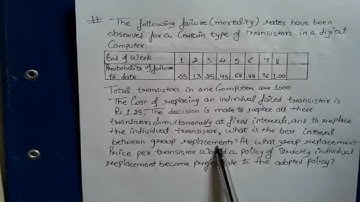 - The following failure (mortality) rates have been
observed for a certain type of transistors in a digital
Computer.
End of Week 1 2 3 4 5 6 7 8
Probability of failure to date .05 .13 .25 .43 .68 .88 .96 1.00
- Total transistors in one Computer are 1000
- The Cost of replacing an individual failed transistor is
Rs 1.25. The decision is made to replace all these
transistors simultaneously at fixed intervals, and to replace
the individual transistor, What is the best interval
between group replacements? At what group replacement
Price per transistor would a policy of strictly individual
replacement become preferable to the adopted policy?